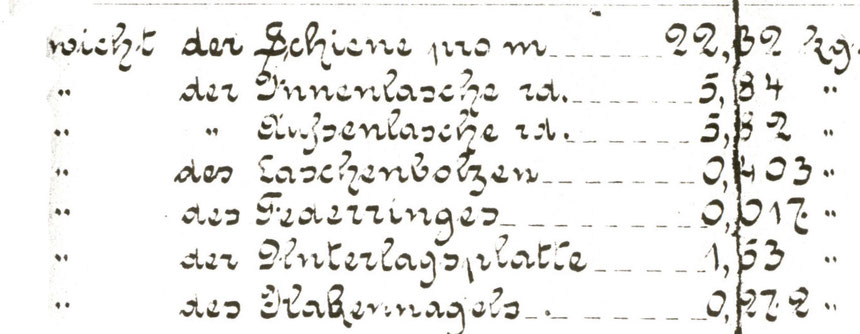 wicht der Schiene pro m 22,32 kg.
" der Innenlasche rd. 5,84 "
" " Außenlasche rd. 5,82 "
" des Laschenbolzen 0,403 "
" des Federringes 0,017 "
" der Unterlagsplatte 1,53 "
" des Hakennagels 0,272 "